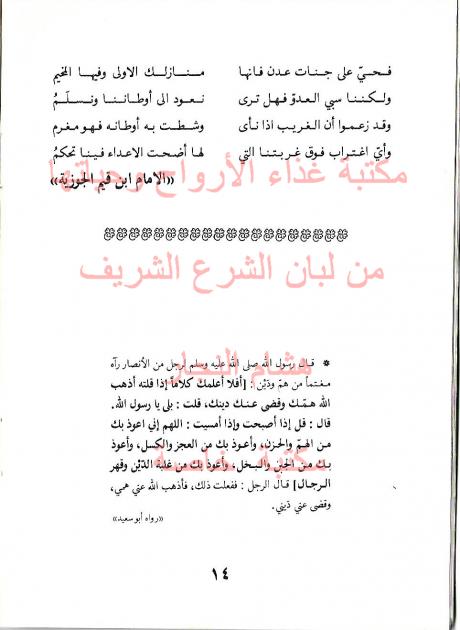 فحيّ على جنات عدن فانها منازلك الاولى وفيها المخيم
ولكننا سبي العدوّ فهل ترى نعود الى أوطاننا ونسلّمُ
وقد زعموا أن الغريب اذا نأى وشطت به أوطانه فهو مغرم
وأيّ اغتراب فوق غربتنا التي لها أضحت الاعداء فينا تحكمُ
مكتبة غذاء الأرواح وحياتها
«الامام ابن قيم الجوزية»
من لبان الشرع الشريف
قال رسول الله صلى الله عليه وسلم لرجل من الأنصار رآه
مغتماً من همّ ودَيْن : [أفلا أعلمك كلاماً إذا قلته أذهب
الله همّك وقضى عنك دينك، قلت : بلى يا رسول الله.
قال : قل إذا أصبحت وإذا أمسيت : اللهم إني اعوذ بك
من الهمّ والحزن، وأعوذ بك من العجز والكسل، وأعوذ
بك من الجبن والبخل، وأعوذ بك من غلبة الدَّيْن وقهر
الرجال] قال الرجل : ففعلت ذلك، فأذهب الله عني همي،
وقضى عني دَيني.
«رواه أبو سعيد»
هشام
مكتبة
١٤